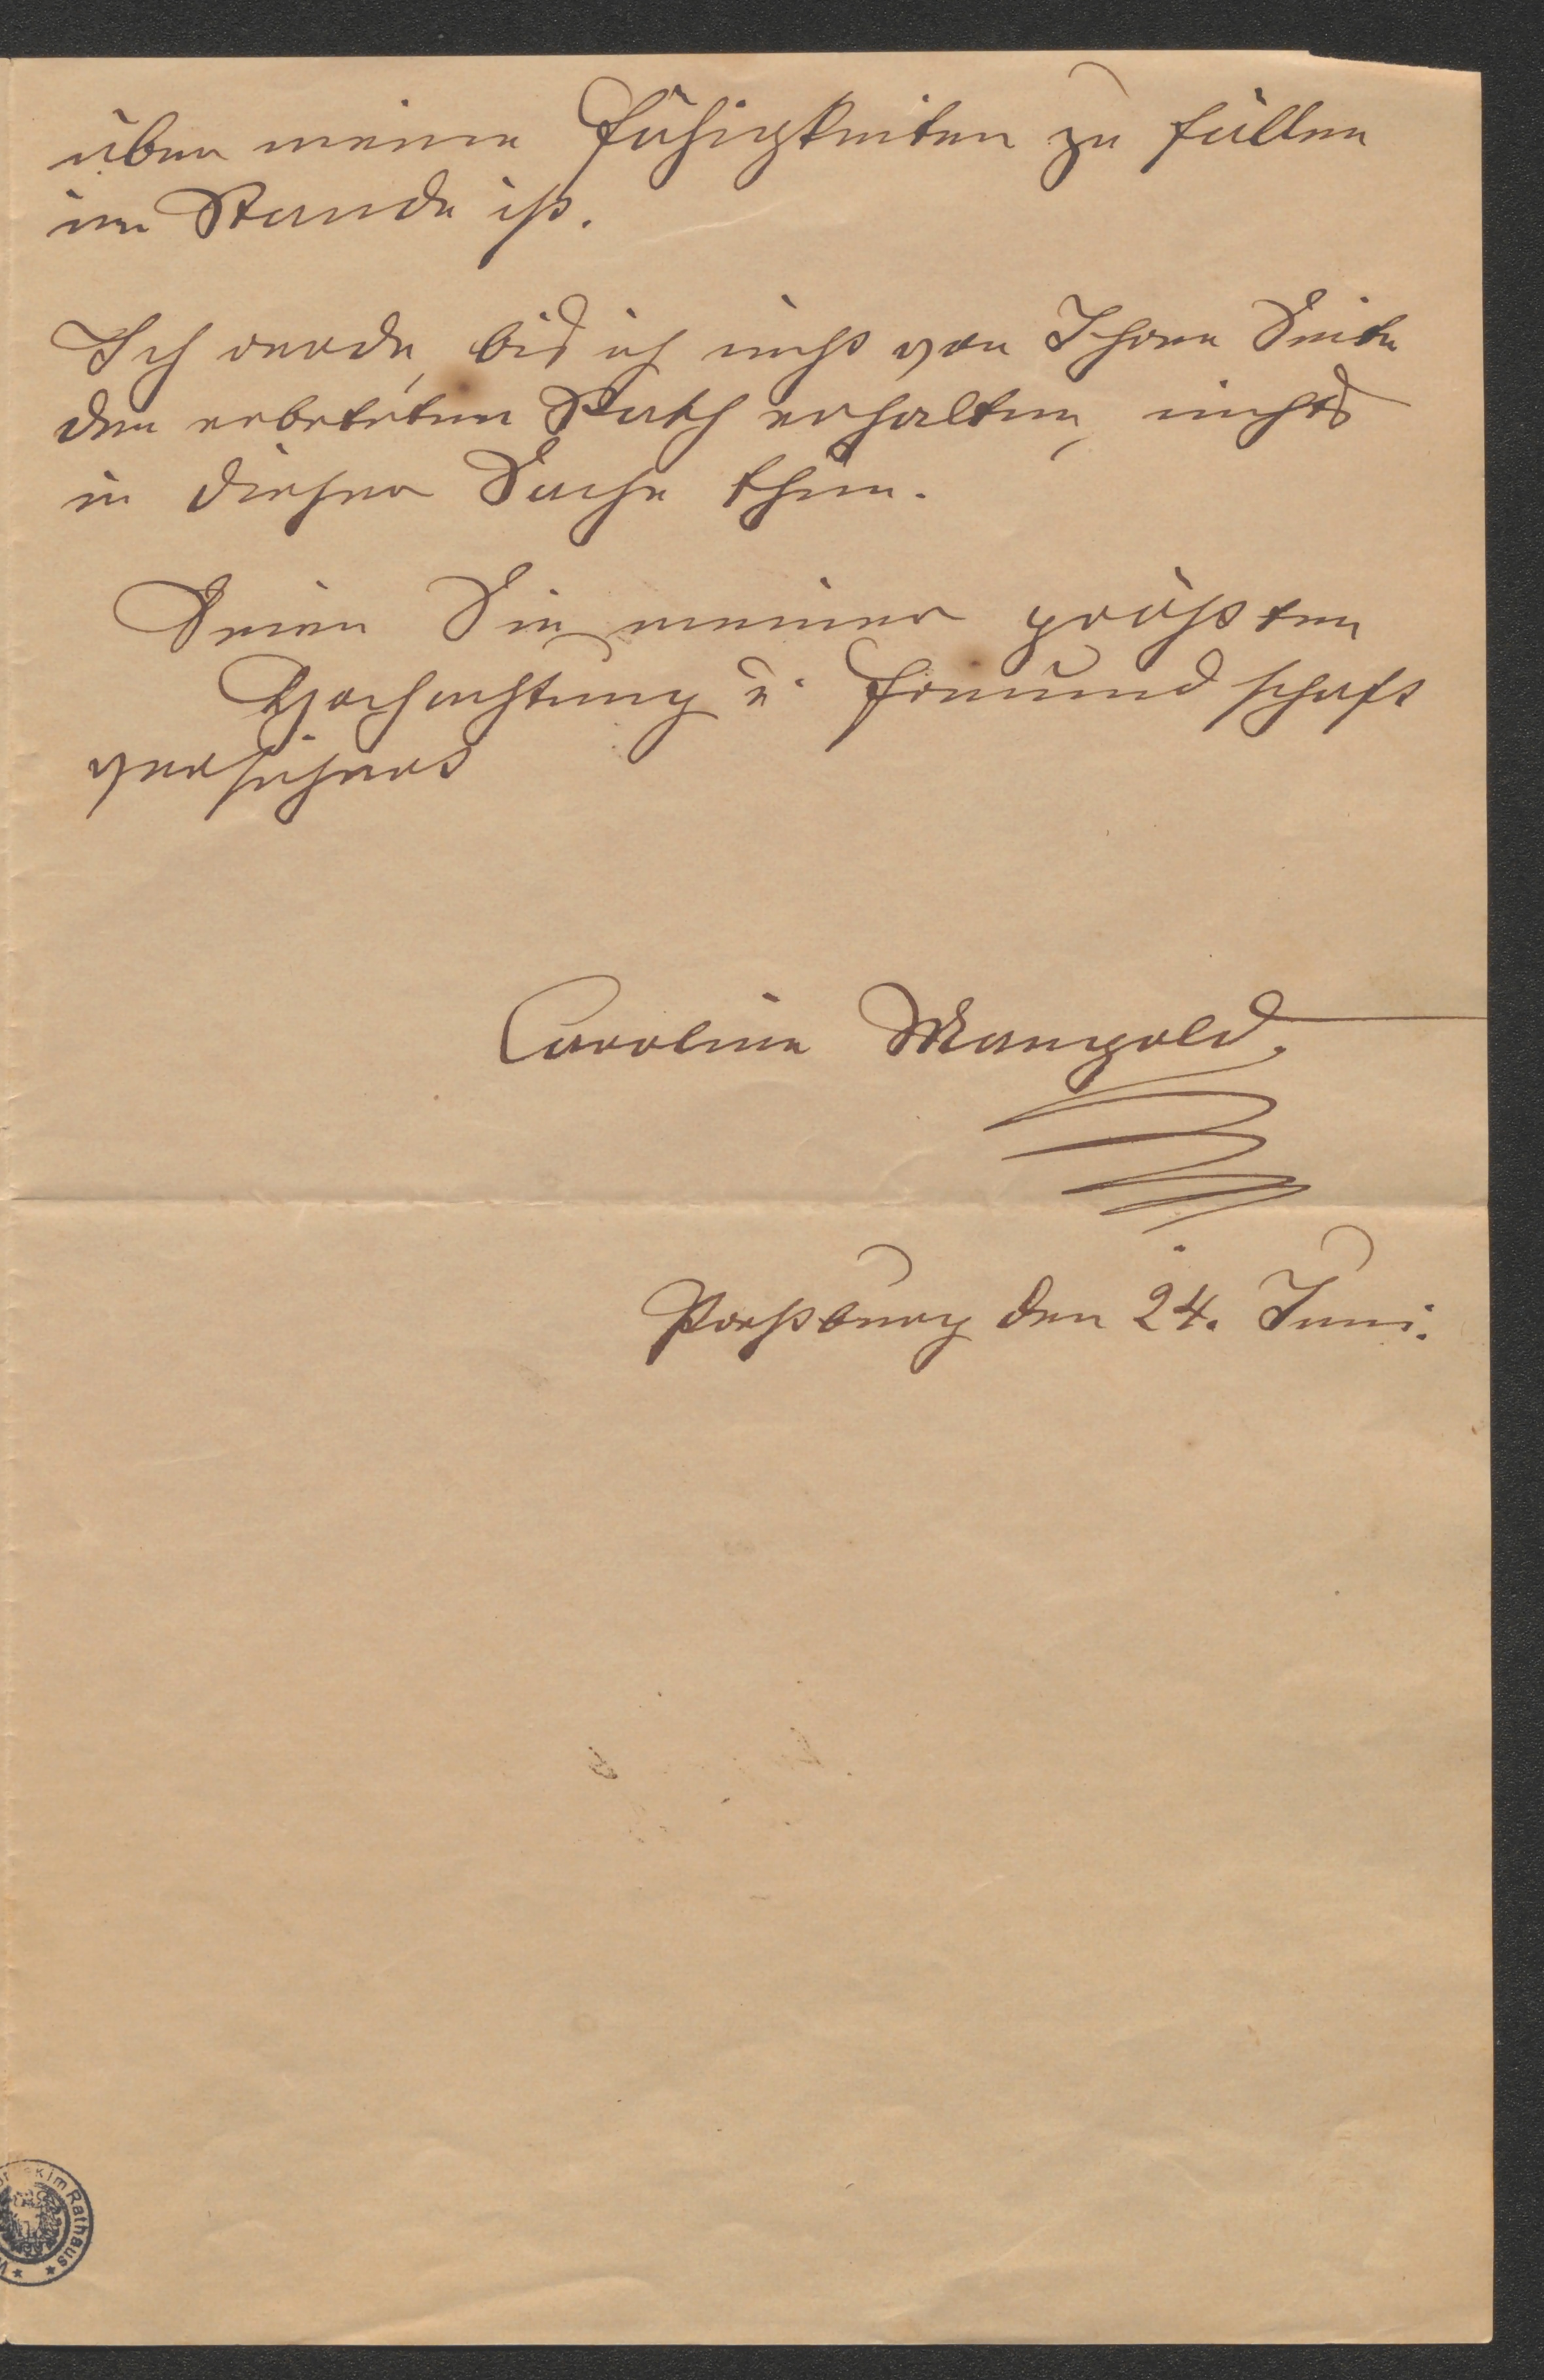 über meine Fähigkeiten zu fällen
im Stande ist.
Ich werde, bis ich nicht von Ihrer Seite
den erbetetenen Rath erhalten, nichts
in dieser Sache thun.
Seien Sie meiner größten
Hochachtung u. Freundschaft
versichert
Caroline Mangold.
Preßburg den 24. Juni.
im Rathaus